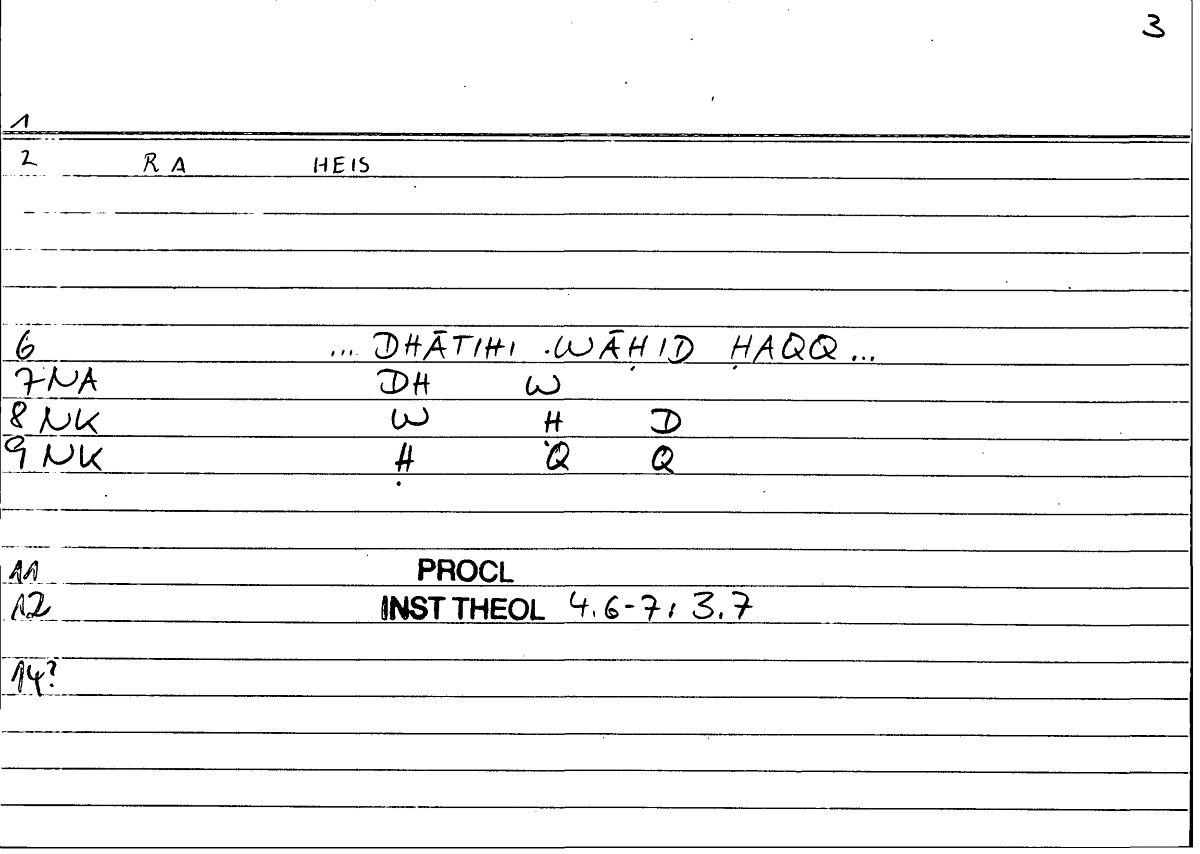 3
1
2 RA HEIS
6 ... DHĀTIHI . WĀḤID ḤAQQ ...
7 NA DH W
8 NK W Ḥ D
9 NK Ḥ Q Q
11 PROCL
12 INST THEOL 4.6-7; 3.7
14?